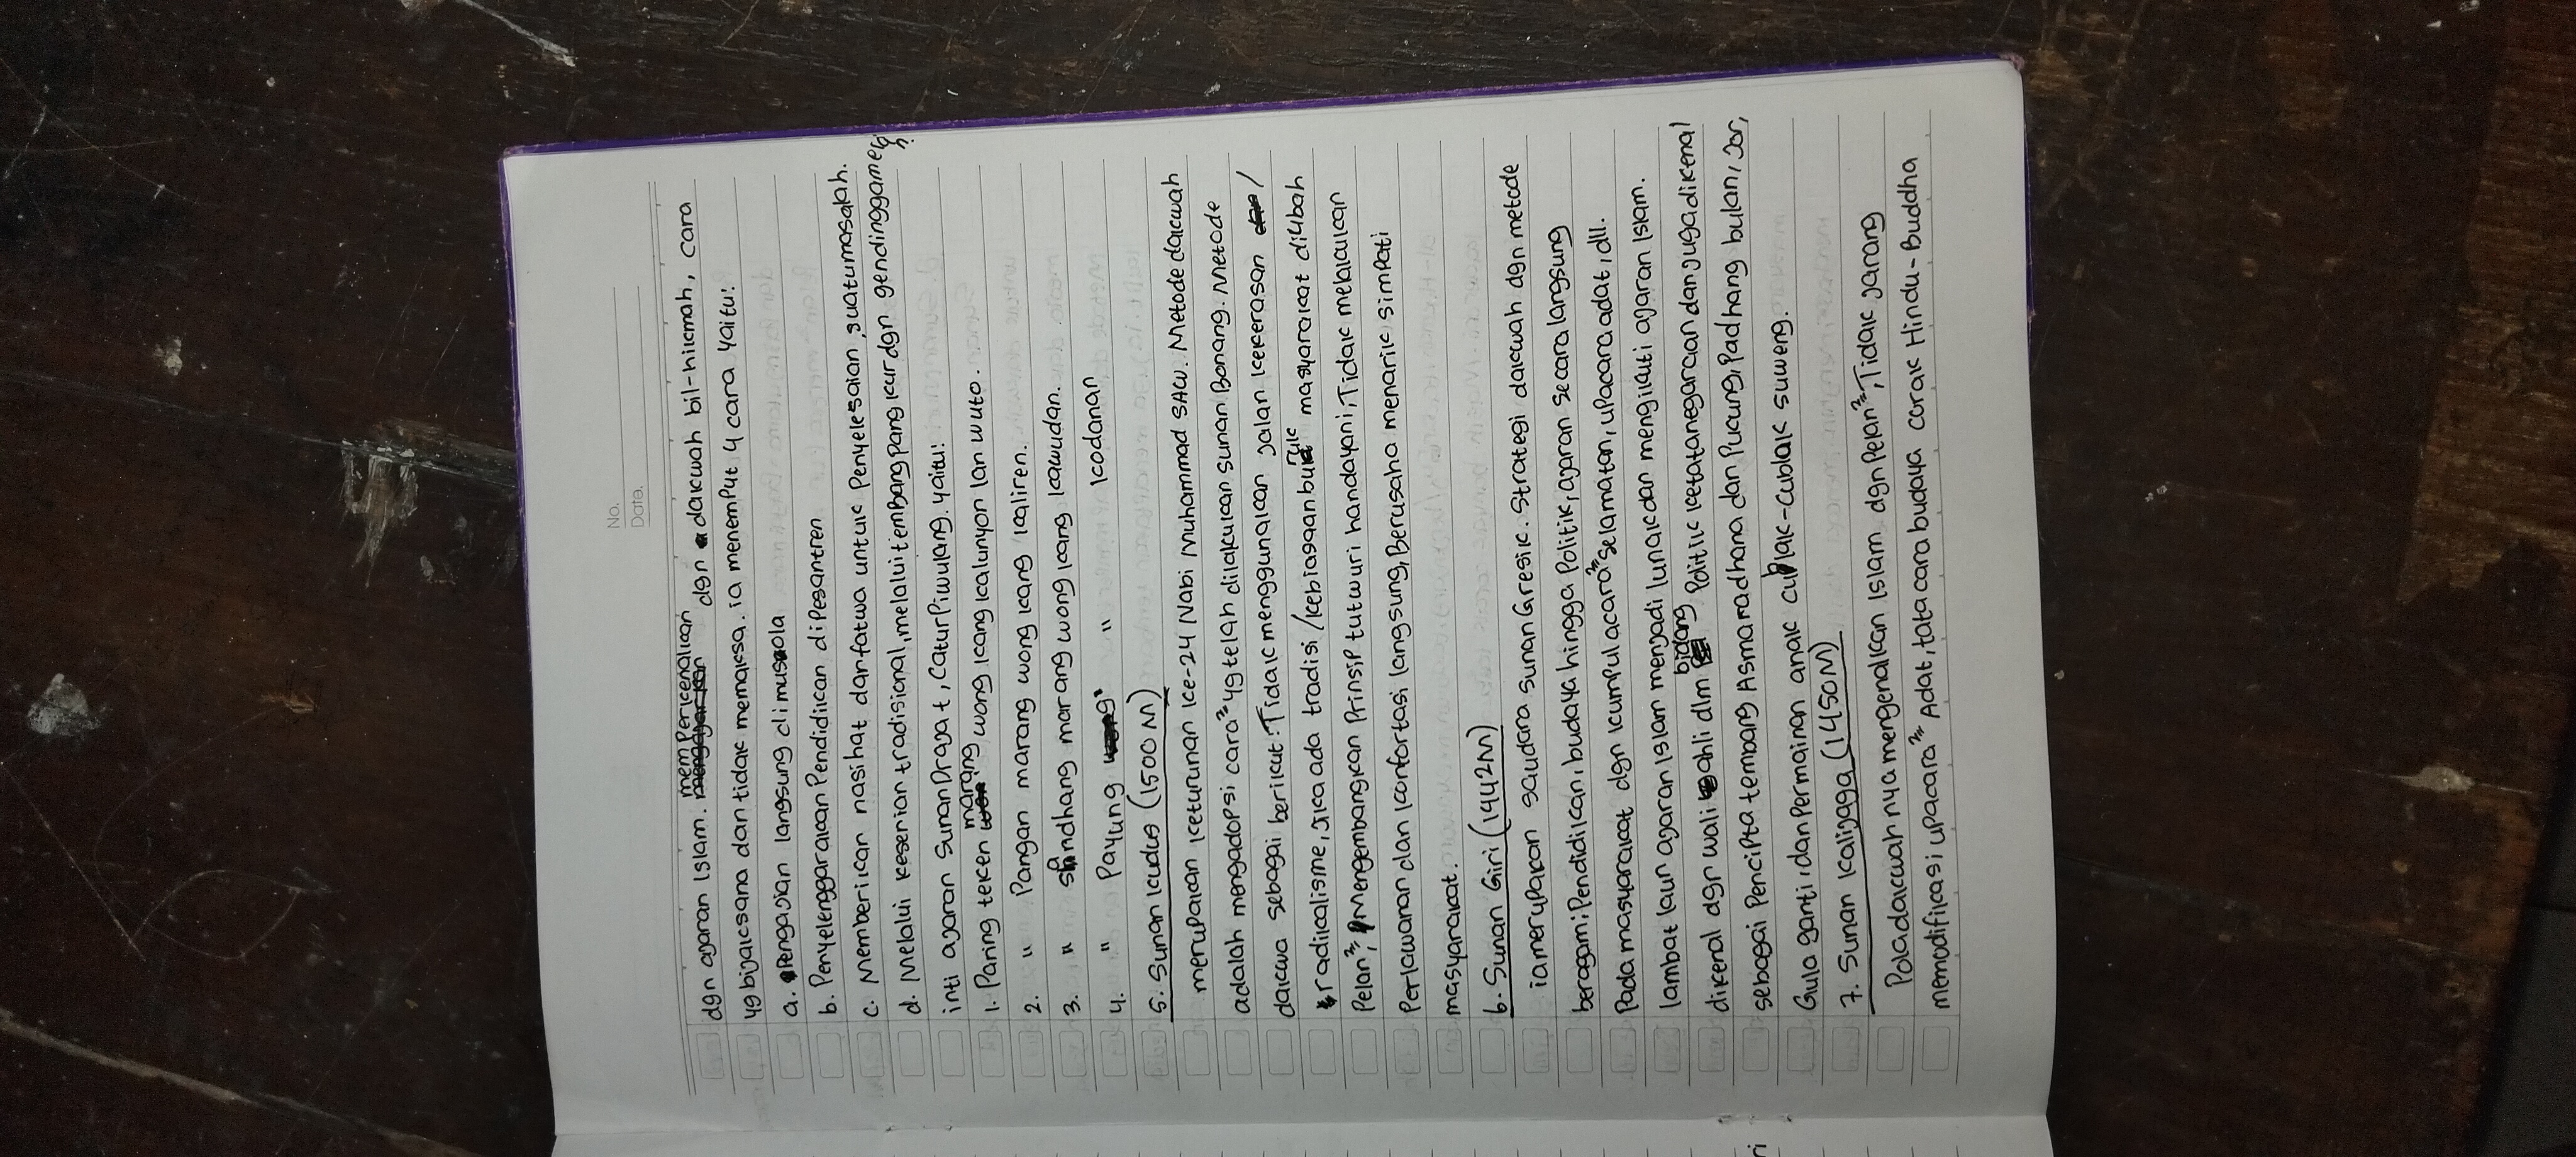 No.
Date.
dgn ajaran Islam. memperkenalkan dgn dakwah bil-hikmah, cara
yg bijaksana dan tidak memaksa. ia menemput 4 cara yaitu:
a. Pengajian langsung di musola
b. Penyelenggaraan Pendidikan di Pesantren
c. Memberikan nasihat dan fatwa untuk Penyelesaian suatu masalah.
d. Melalui keserian tradisional, melalui tembang pangkur dgn gending gamelan.
inti ajaran Sunan Drajat, Catur Piwulang. yaitu:
1. Paring teken marang wong kang kalunyon lan wuto.
2. " Pangan marang wong kang kaliren.
3. " sandhang marang wong kang kawudan.
4. " Payung " kodanan
5. Sunan Kudus (1500 M)
merupakan keturunan ke-24 Nabi Muhammad SAW. Metode dakwah
adalah mengadopsi cara² yg telah dilakukan Sunan Bonang. Metode
dakwa sebagai berikut: Tidak menggunakan jalan kekerasan /
radikalisme, jika ada tradisi /kebiasaan buruk masyarakat diubah
Pelan², Mengembangkan Prinsip tutwuri handayani, Tidak melakukan
Perlawanan dan konfortasi langsung, Berusaha menarik simpati
masyarakat.
6. Sunan Giri (1442 M)
ia merupakan saudara sunan Gresik. Strategi dakwah dgn metode
beragam; Pendidikan, budaya hingga Politik, ajaran secara langsung
Pada masyarakat dgn kumpul acara² selamatan, upacara adat, dll.
lambat laun ajaran Islam menjadi lunak dan mengikuti ajaran Islam.
dikenal dgn wali ahli dlm bidang Politik ketatanegaraan dan juga dikenal
sebagai Pencipta tembang Asmaradhana dan Pucung, Padhang bulan, jor,
Gula ganti, dan Permainan anak cublak-cublak suweng.
7. Sunan Kalijaga (1450 M)
Pola dakwah nya mengenalkan Islam dgn Pelan², Tidak jarang
memodifikasi upacara² Adat, tata cara budaya corak Hindu-Buddha